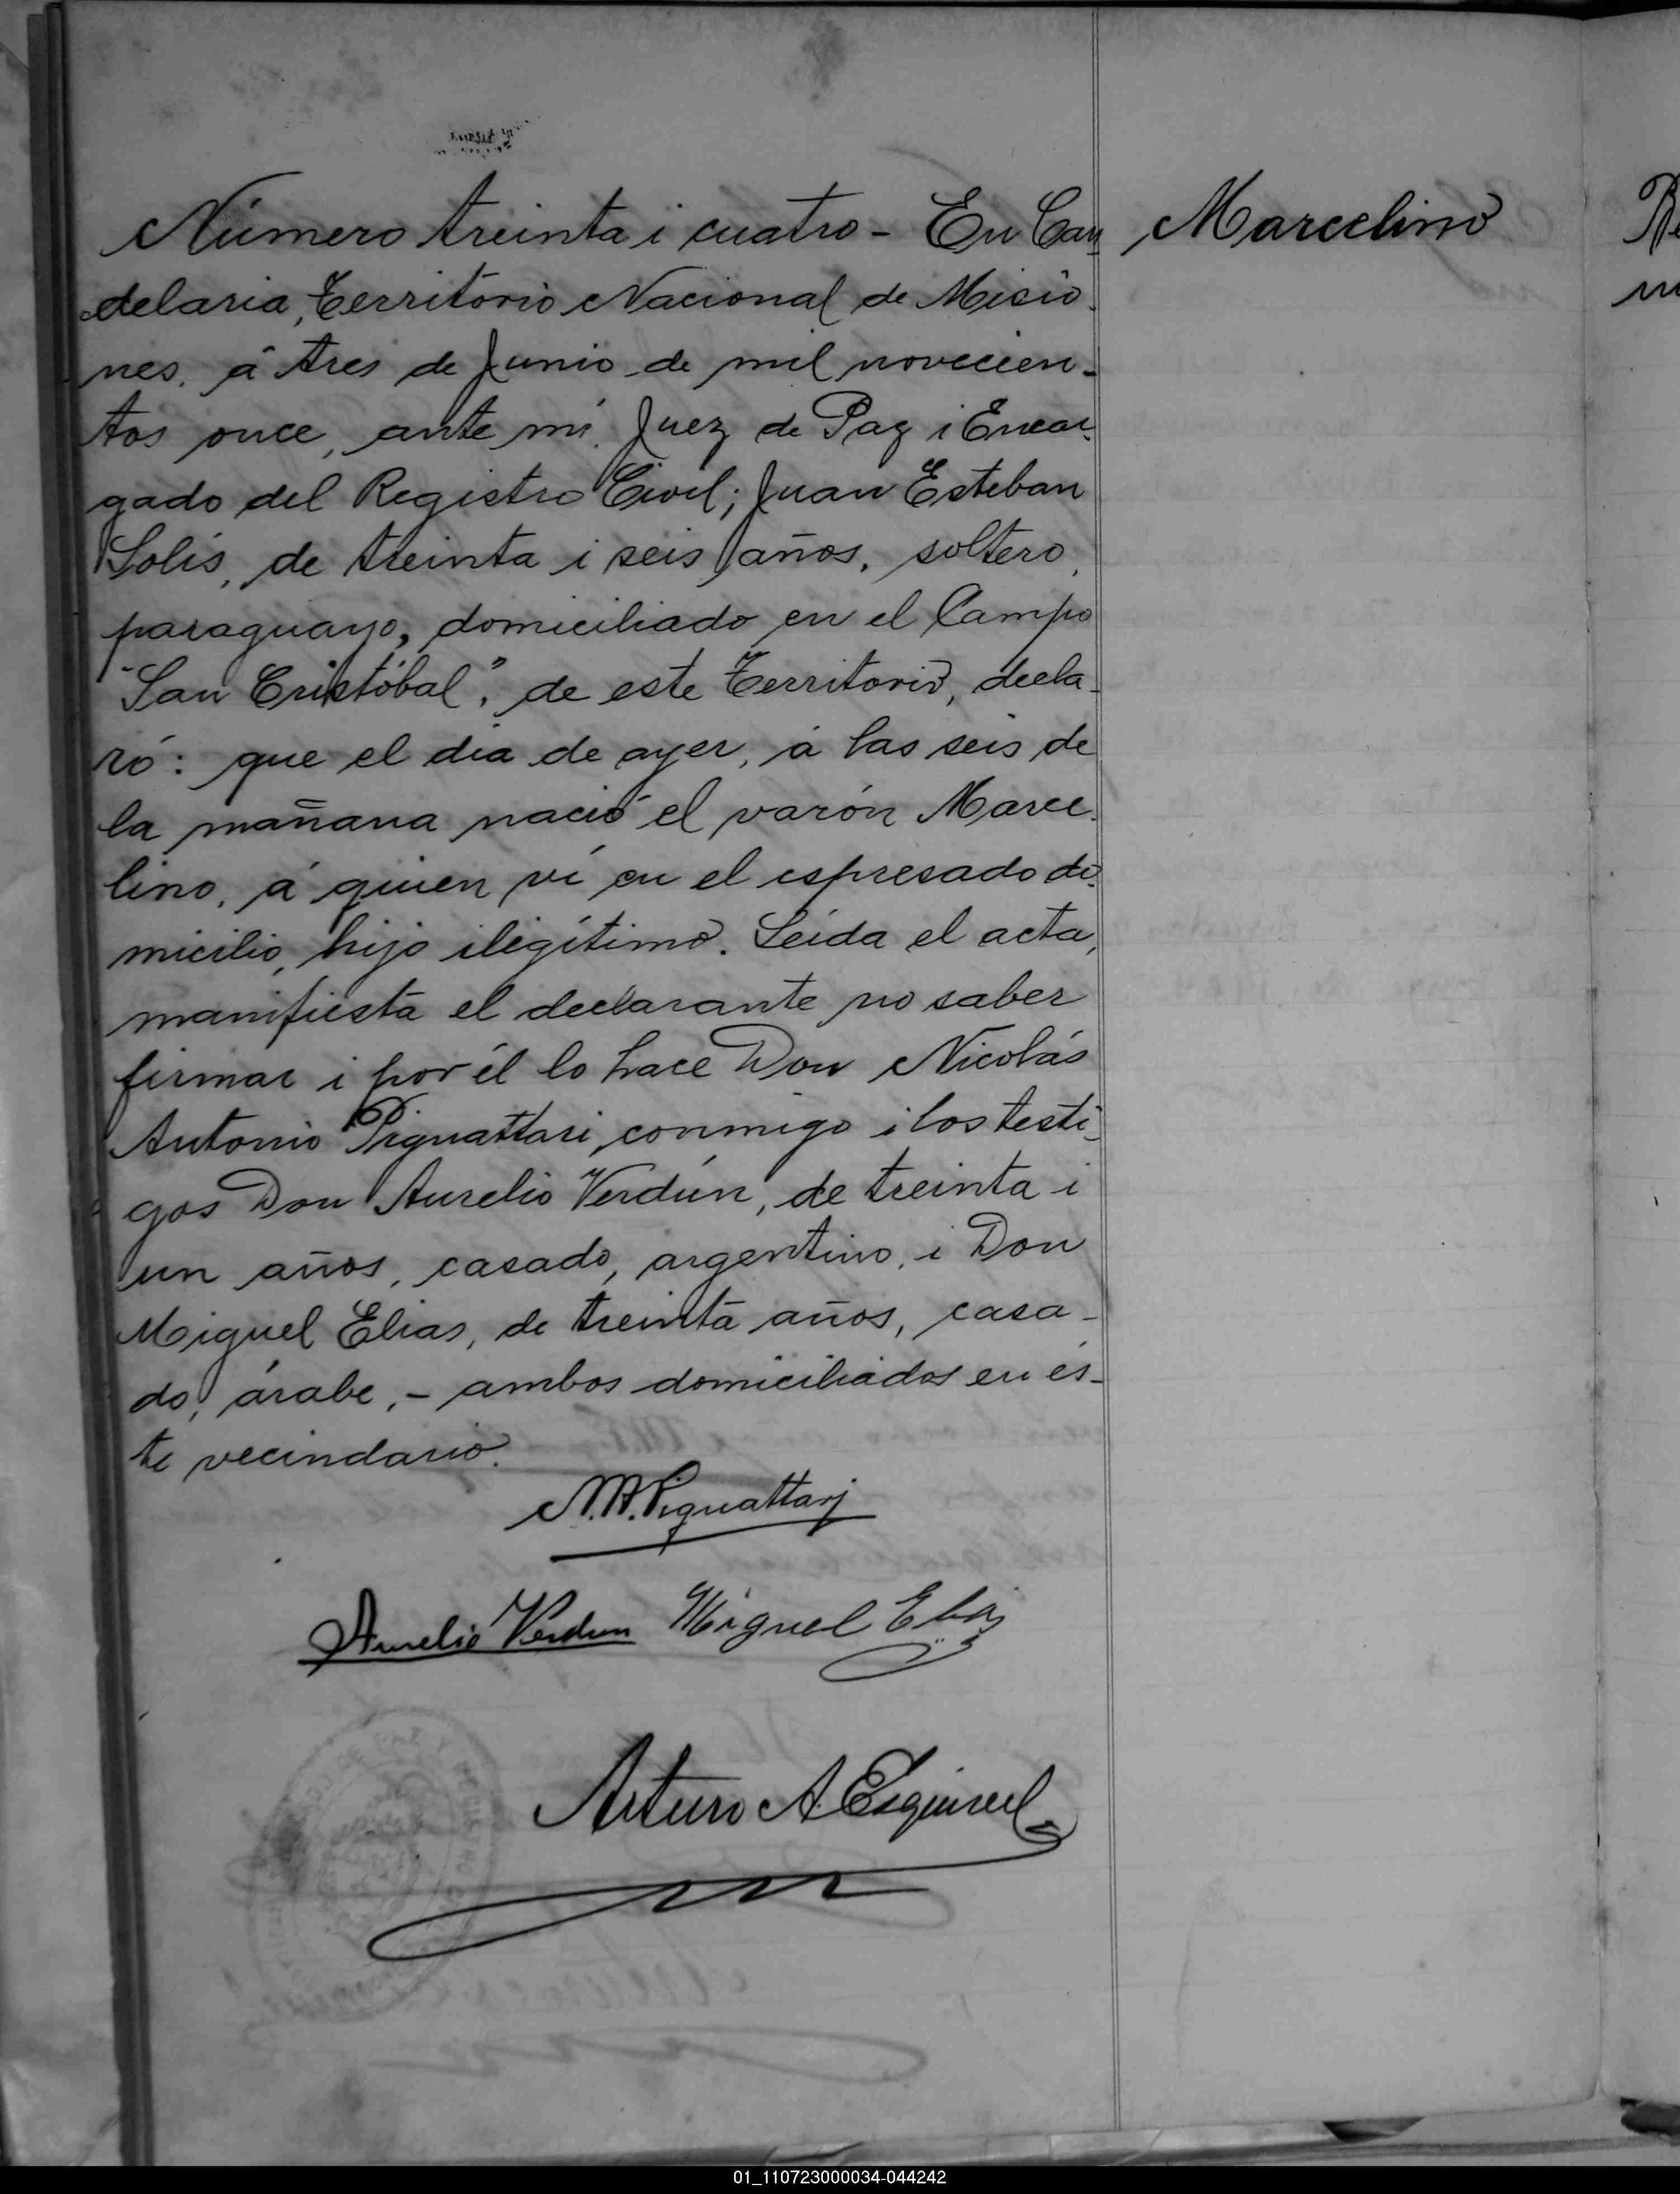 Número treinta i cuatro - En Can
Marcelino
delaria, Territorio Nacional de Misio-
nes, á tres de Junio de mil novecien-
tos once, ante mí, Juez de Paz i Encar-
gado del Registro Civil; Juan Esteban
Solís, de treinta i seis años, soltero,
paraguayo, domiciliado en el Campo
"San Cristóbal", de este Territorio, decla-
ró: que el día de ayer, á las seis de
la mañana nació el varón Marce-
lino, á quien ví en el espresado do-
micilio, hijo ilegítimo. Leída el acta,
manifiesta el declarante no saber
firmar i por él lo hace Don Nicolás
Antonio Pignattari, conmigo i los testi-
gos Don Aurelio Verdún, de treinta i
un años, casado, argentino, i Don
Miguel Elias, de treinta años, casa-
do, árabe, - ambos domiciliados en és-
te vecindario.
N. A. Pignattarj
Aurelio Verdun Miguel Elias
Arturo A. Esquivel
01_110723000034-044242